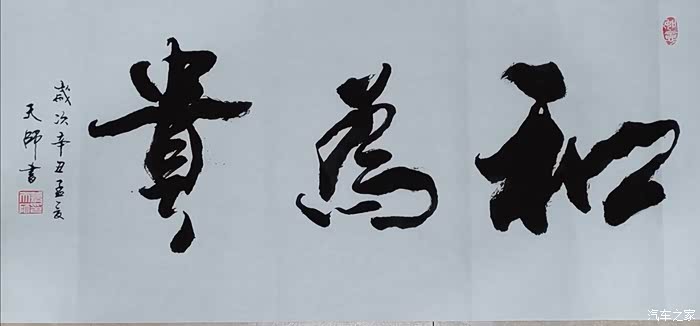 和為貴
歲次辛丑孟夏
天師書
汽车之家